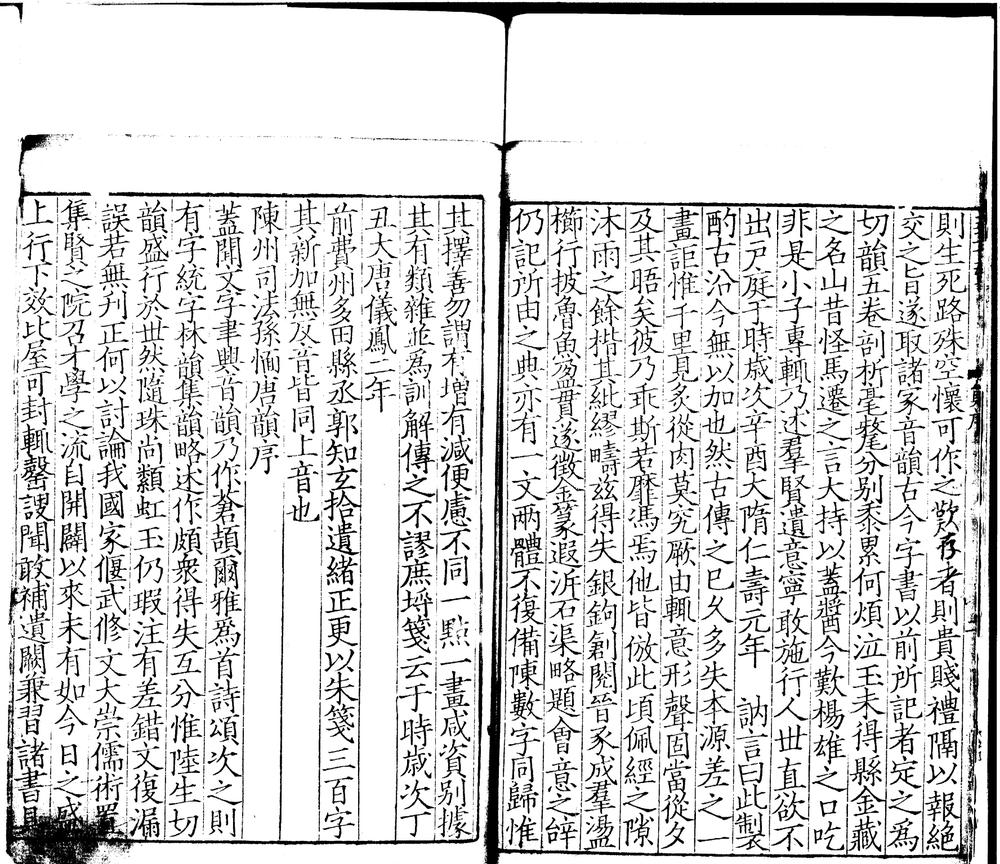 則生死路殊空懷可作之歎存者則貴賤禮隔以報絕
交之旨遂取諸家音韻古今字書以前所記者定之爲
切韻五卷剖析毫氂分別黍累何煩泣玉未得縣金藏
之名山昔怪馬遷之言大持以蓋醬今歎楊雄之口吃
非是小子專輒乃述羣賢遺意寧敢施行人世直欲不
出戸庭于時歲次辛酉大隋仁壽元年　訥言曰此製
酌古沿今無以加也然古傳之已久多失本源差之一
畫詎惟千里見炙從肉莫究厥由輒意形聲固當從夕
及其晤矣彼乃乖斯若靡馮焉他皆倣此頃佩經之隙
沐雨之餘揩其紕繆疇兹得失銀鉤剏閱晉豕成羣盪
櫛行披魯魚盈貫遂徵金篆遐泝石渠略題會意之辝
仍記所由之典亦有一文兩體不復備陳數字同歸惟
其擇善勿謂有增有減便慮不同一點一畫咸資別據
其有類雜並爲訓解傳之不謬庶埒箋云于時歲次丁
丑大唐儀鳳二年
前費州多田縣丞郭知玄拾遺緒正更以朱箋三百字
其新加無反音皆同上音也
陳州司法孫愐唐韻序
蓋聞文字聿興音韻乃作蒼頡爾雅爲首詩頌次之則
有字統字林韻集韻略述作頗衆得失互分惟陸生切
韻盛行於世然隨珠尚纇虹玉仍瑕注有差錯文復漏
誤若無刋正何以討論我國家偃武修文大崇儒術置
集賢之院召才學之流自開闢以來未有如今日之盛
上行下效比屋可封輒罄謏聞敢補遺闕兼習諸書具